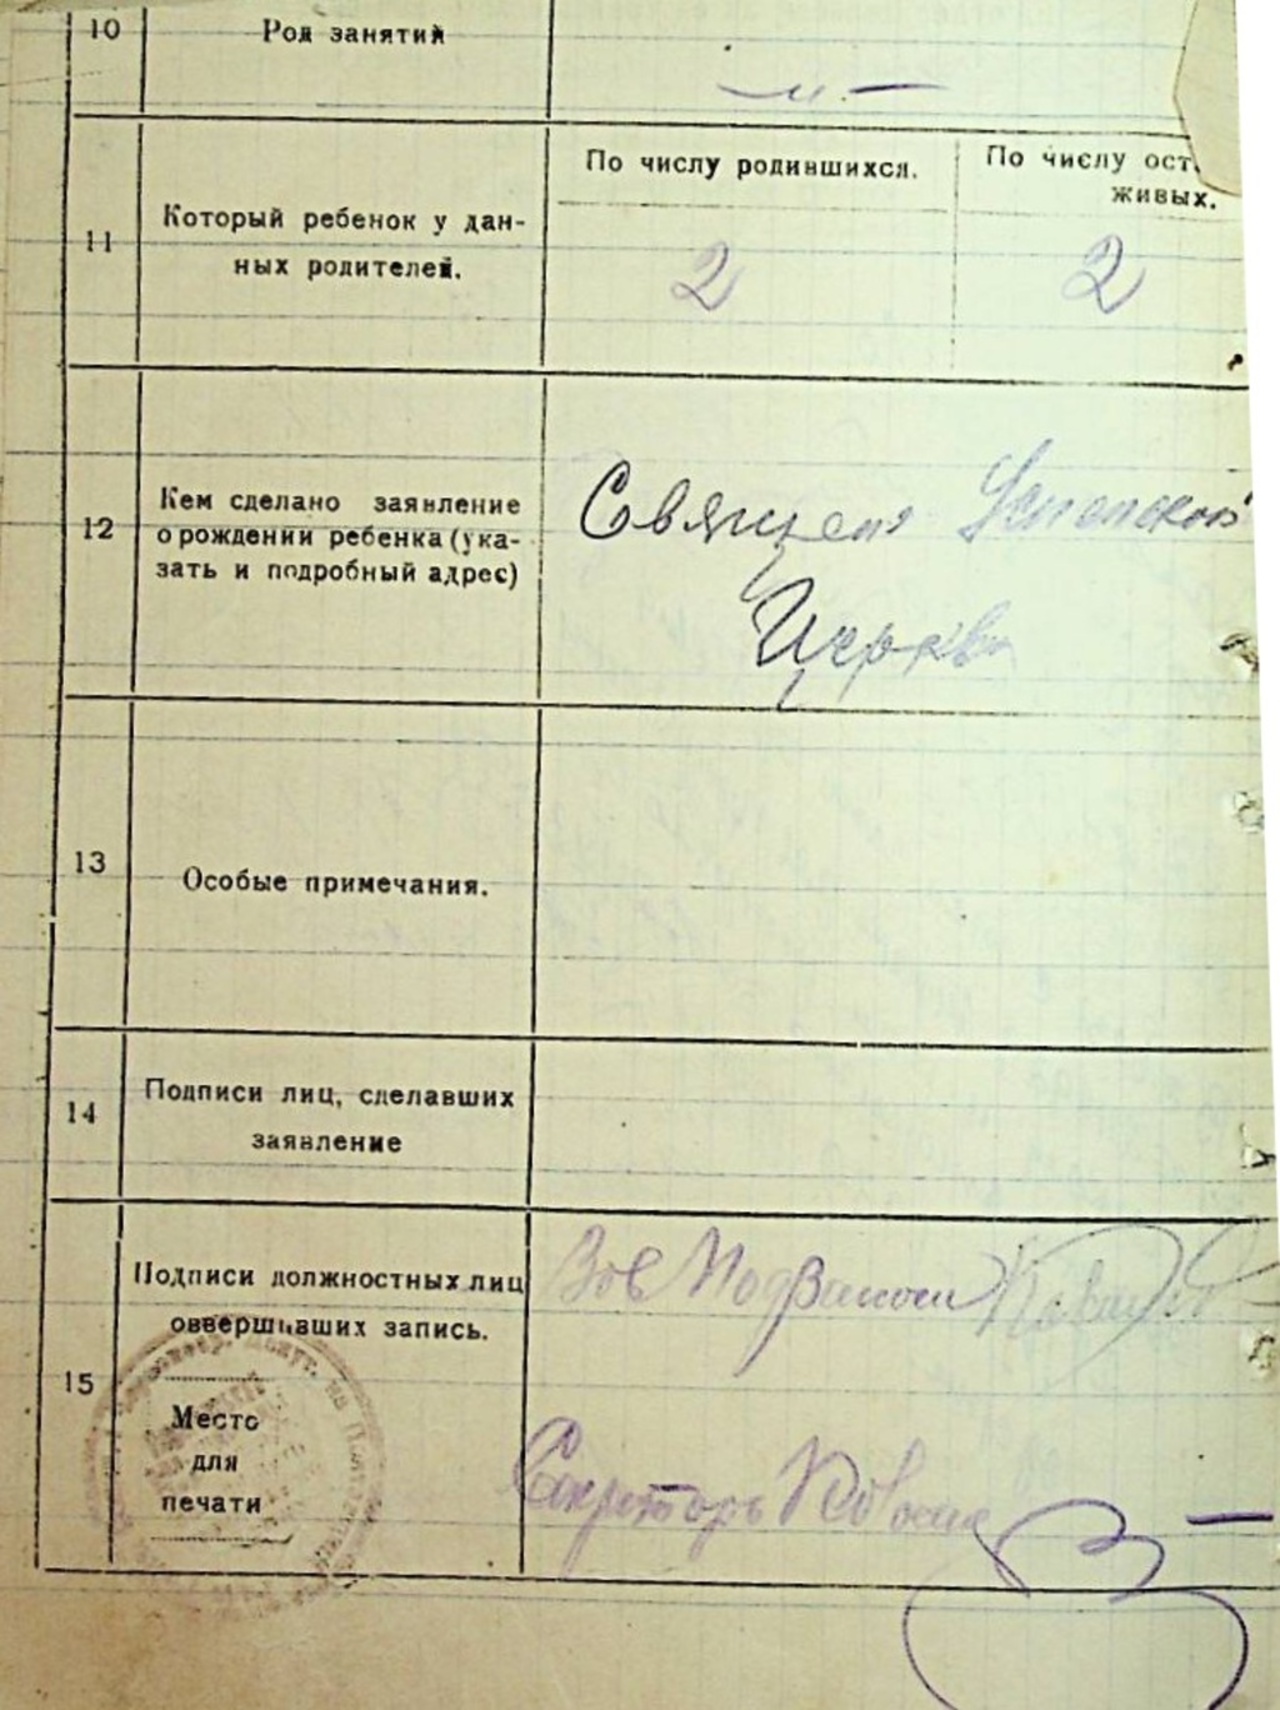 10
Род занятий
— " —
11
Который ребенок у дан-
ных родителей.
По числу родившихся.
2
По числу ост.
живых.
2
12
Кем сделано заявление
о рождении ребенка (ука-
зать и подробный адрес)
Священ
Церкви
13
Особые примечания.
14
Подписи лиц, сделавших
заявление
15
Подписи должностных лиц
овверш­ивших запись.
Место
для
печати
Зав
Секретарь